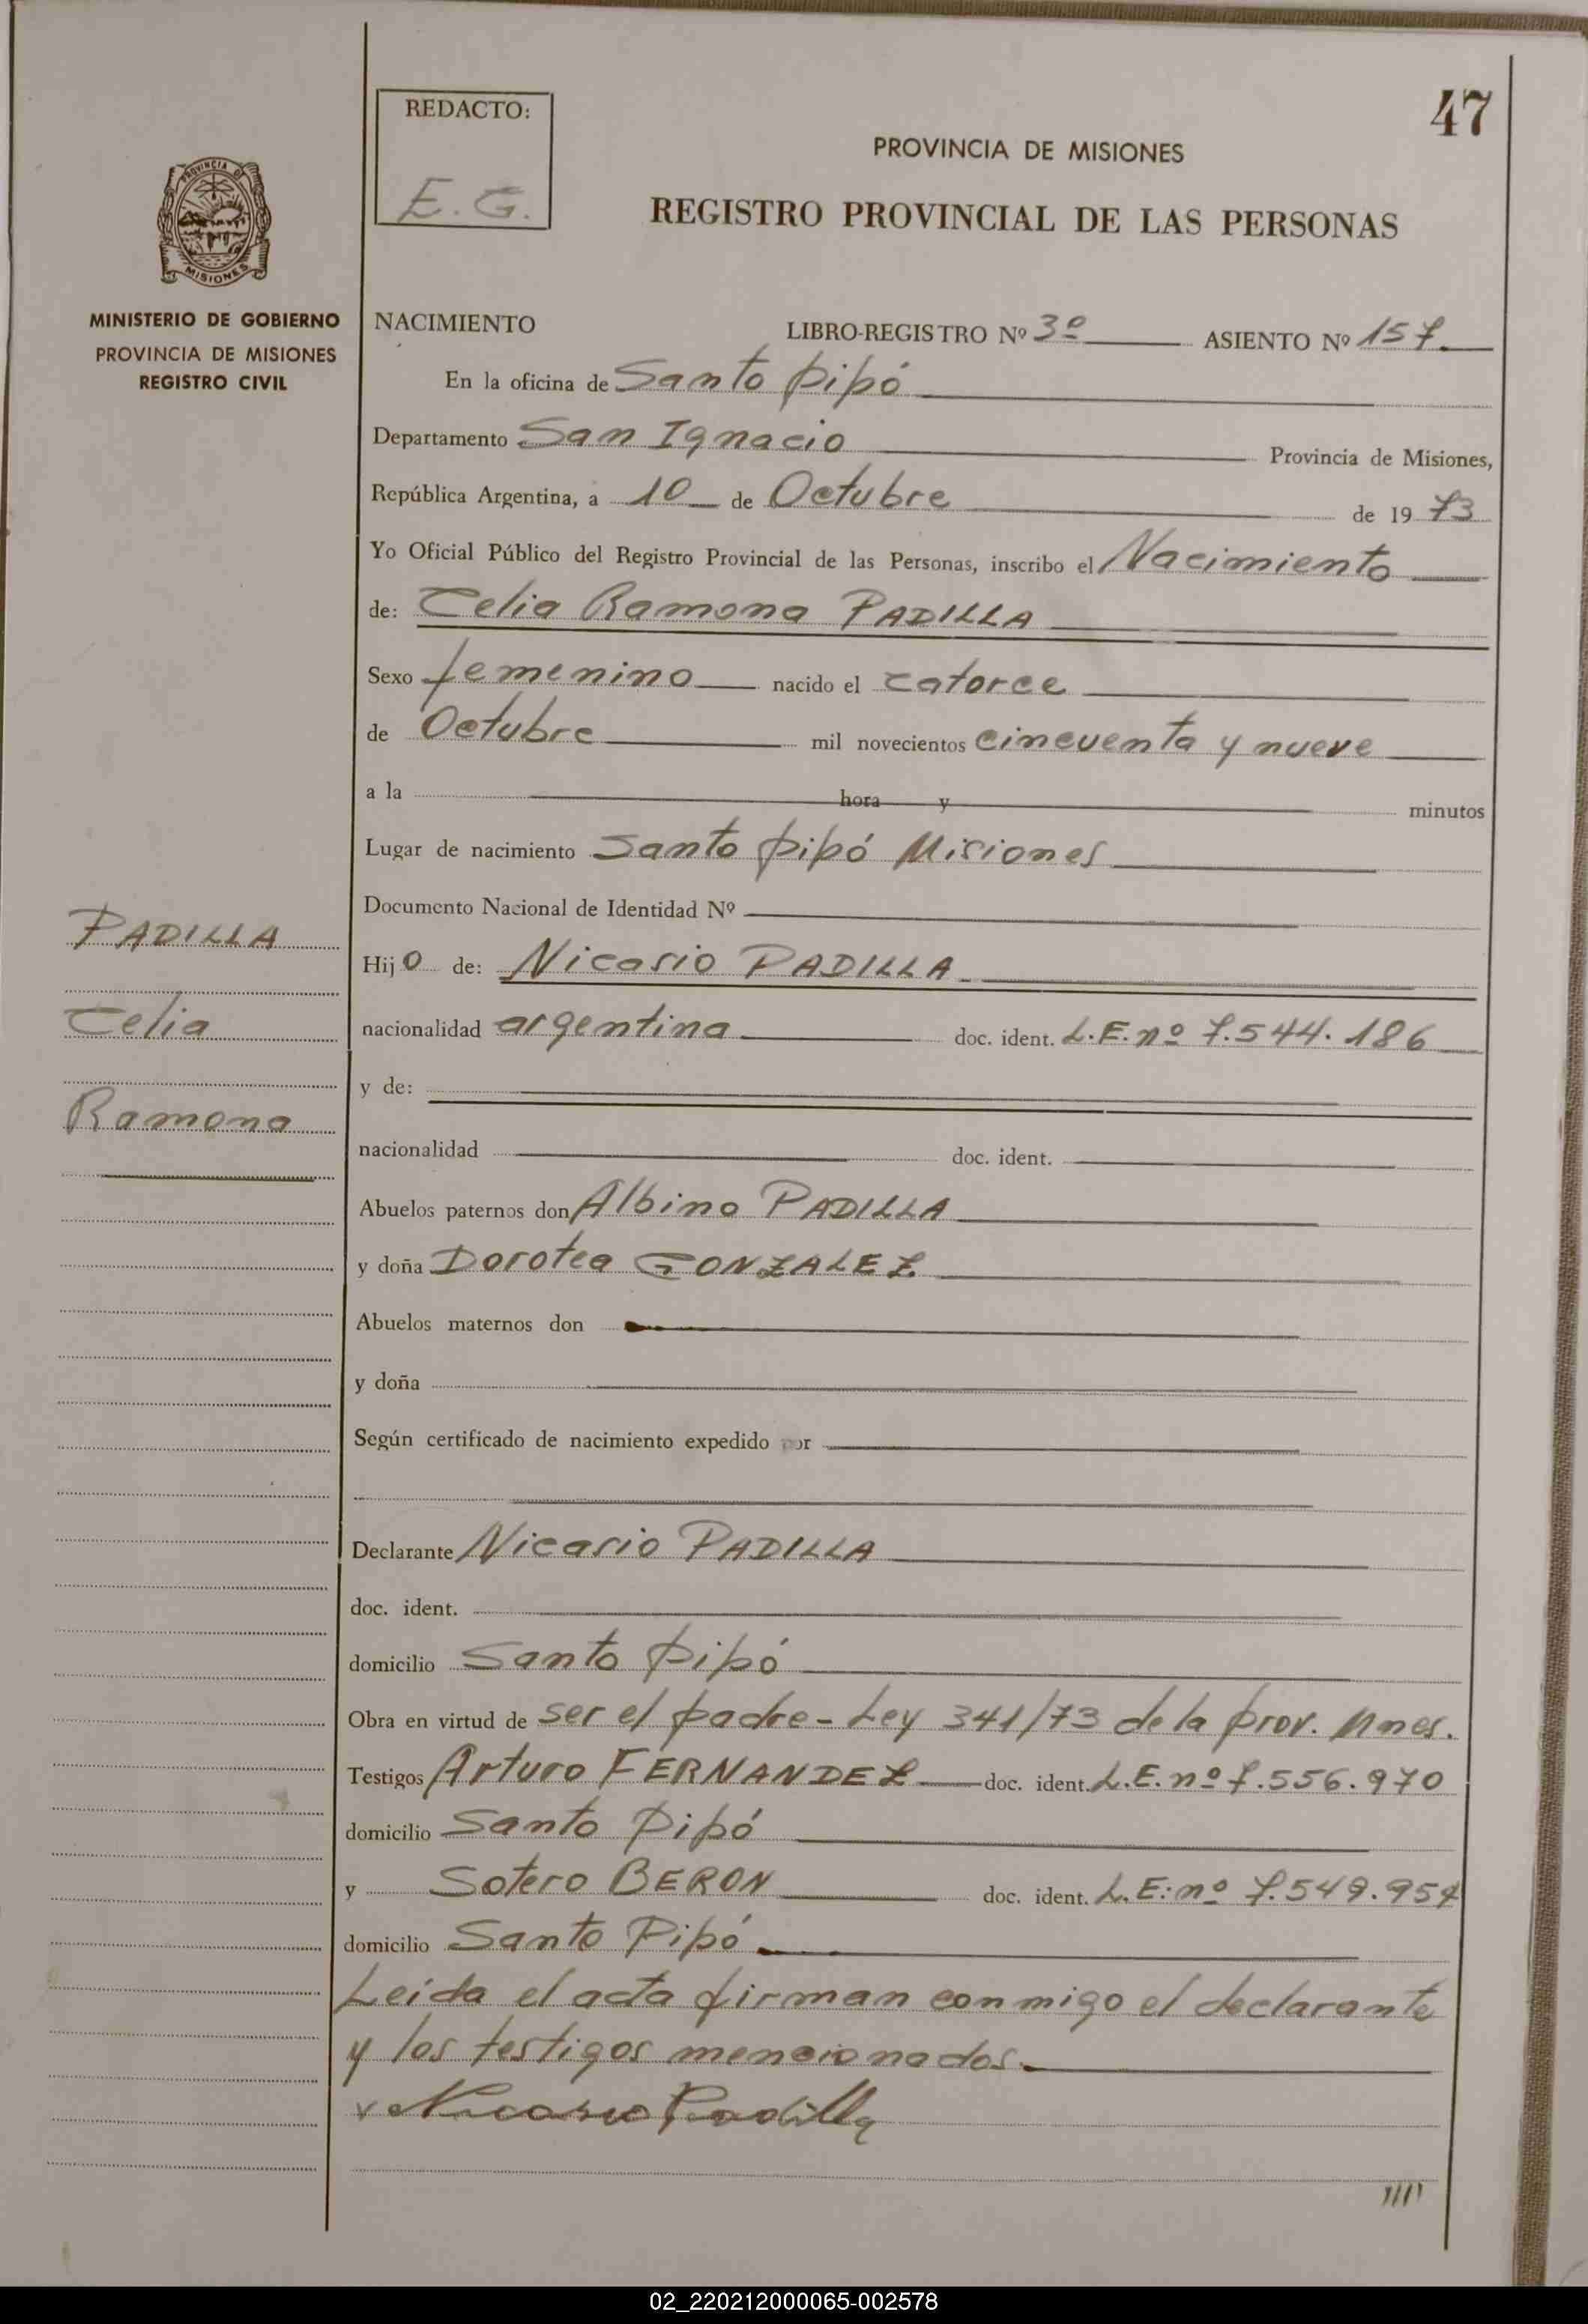 47
REDACTO:
E. G.
PROVINCIA DE MISIONES
REGISTRO PROVINCIAL DE LAS PERSONAS
PROVINCIA DE
MISIONES
MINISTERIO DE GOBIERNO
PROVINCIA DE MISIONES
REGISTRO CIVIL
NACIMIENTO LIBRO-REGISTRO Nº 3º ASIENTO Nº 157.
En la oficina de Santo Pipó
Departamento San Ignacio Provincia de Misiones,
República Argentina, a 10 de Octubre de 19 73
Yo Oficial Público del Registro Provincial de las Personas, inscribo el Nacimiento
de: Celia Ramona PADILLA
Sexo femenino nacido el catorce
de Octubre mil novecientos cincuenta y nueve
a la hora y minutos
Lugar de nacimiento Santo Pipó Misiones
Documento Nacional de Identidad Nº
PADILLA
Celia
Ramona
Hijo de: Nicasio PADILLA
nacionalidad argentina doc. ident. L.E. nº 7.544.186
y de:
nacionalidad doc. ident.
Abuelos paternos don Albino PADILLA
y doña Dorotea GONZALEZ
Abuelos maternos don
y doña
Según certificado de nacimiento expedido por
Declarante Nicasio PADILLA
doc. ident.
domicilio Santo Pipó
Obra en virtud de ser el padre - Ley 341/73 de la prov. Mnes.
Testigos Arturo FERNANDEZ doc. ident. L.E. nº 7.556.970
domicilio Santo Pipó
y Sotero BERON doc. ident. L.E: nº 7.549.957
domicilio Santo Pipó
Leída el acta firman conmigo el declarante
y los testigos mencionados.
x Nicasio Padilla
02_220212000065-002578